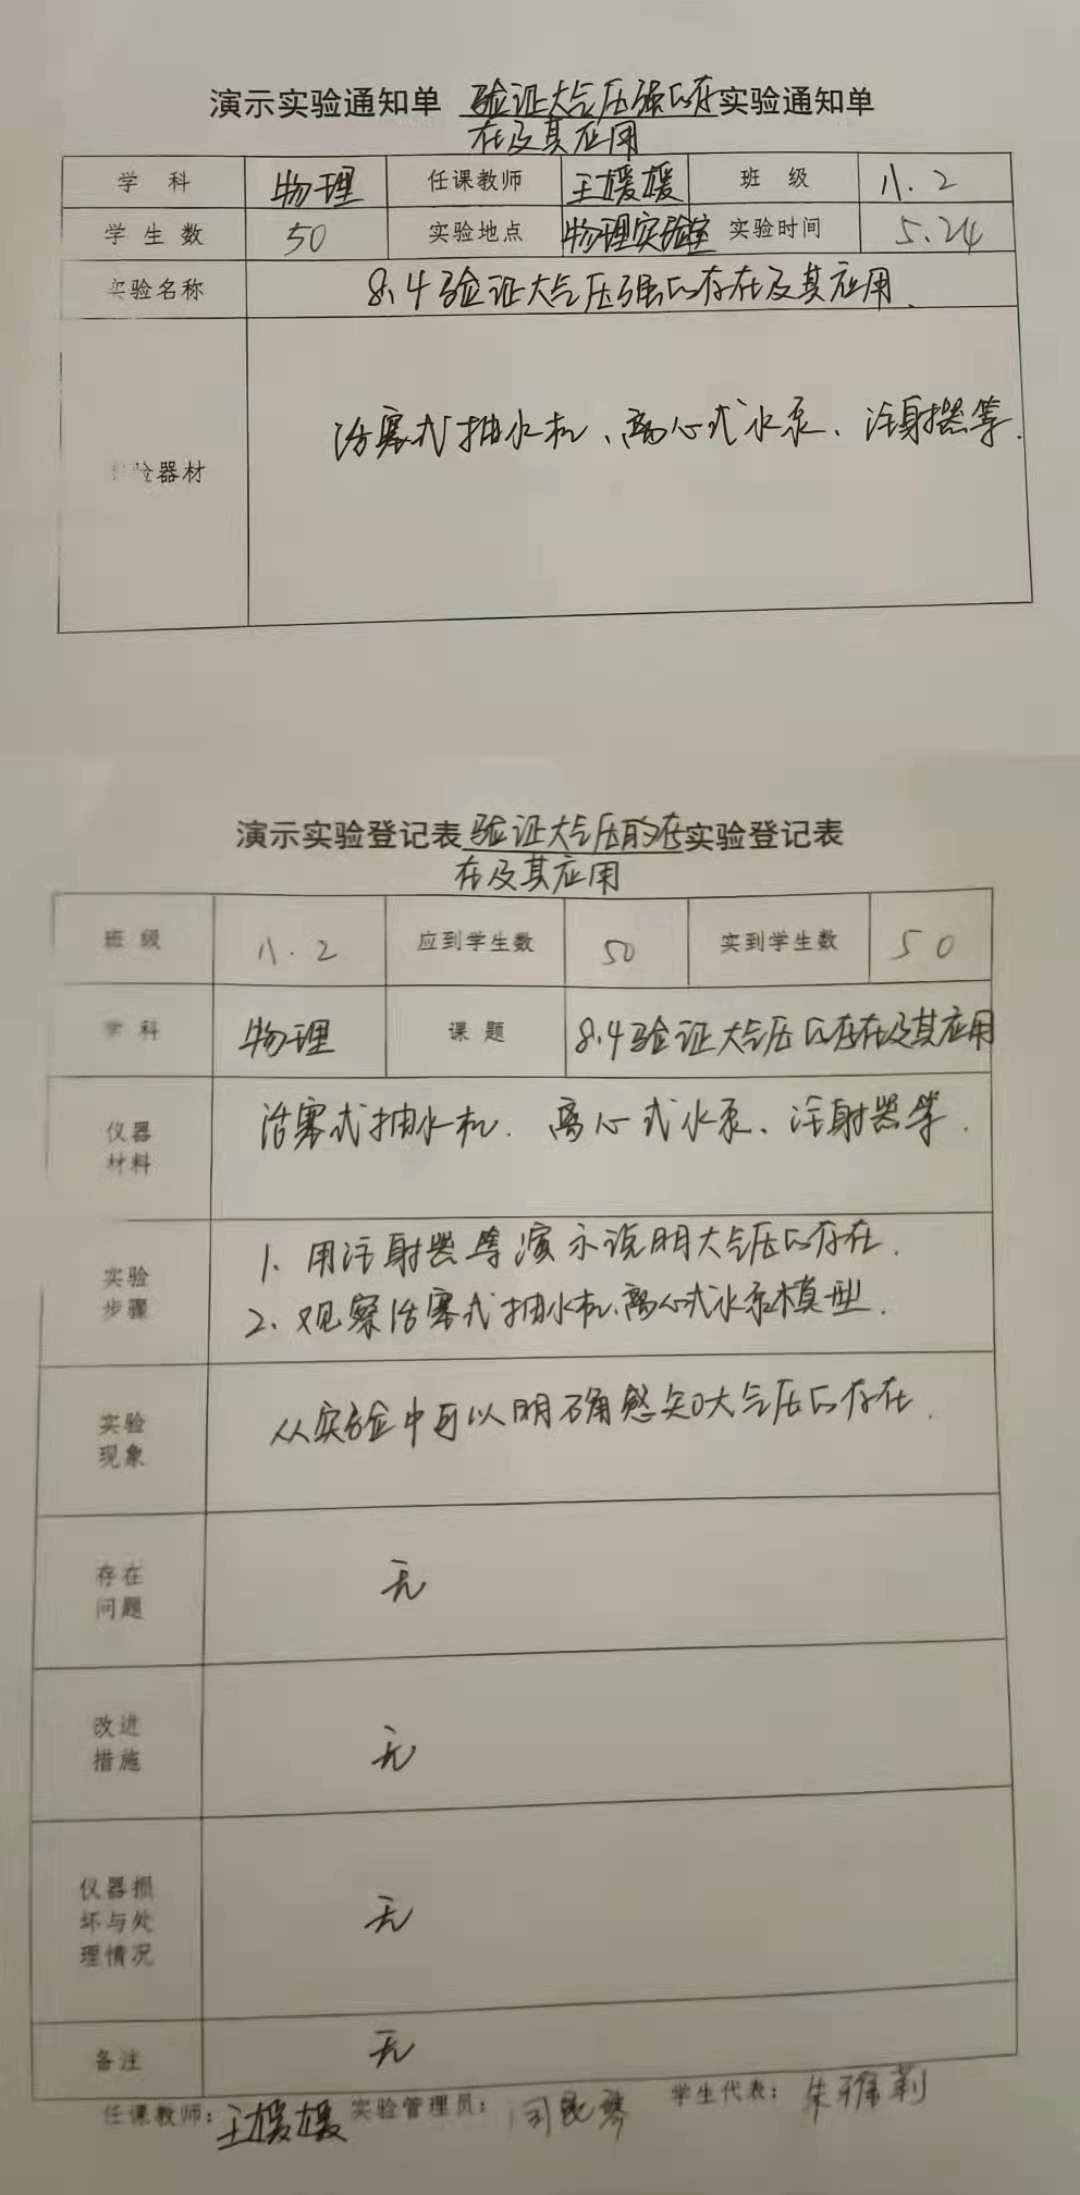 演示实验通知单 验证大气压强的存实验通知单
在及其应用
学 科 物理 任课教师 王媛媛 班 级 八.2
学 生 数 50 实验地点 物理实验室 实验时间 5.24
实验名称 8.4验证大气压强的存在及其应用.
实验器材 活塞式抽水机、离心式水泵、注射器等.
演示实验登记表 验证大气压的存实验登记表
在及其应用
班 级 八.2 应到学生数 50 实到学生数 50
学 科 物理 课 题 8.4验证大气压的存在及其应用
仪器
材料
活塞式抽水机. 离心式水泵、注射器等.
实验
步骤
1. 用注射器等演示说明大气压的存在.
2. 观察活塞式抽水机、离心式水泵模型.
实验
现象
从实验中可以明确感知大气压的存在.
存在
问题
无
改进
措施
无
仪器损
坏与处
理情况
无
备注 无
任课教师: 王媛媛 实验管理员: 学生代表: 朱雅莉